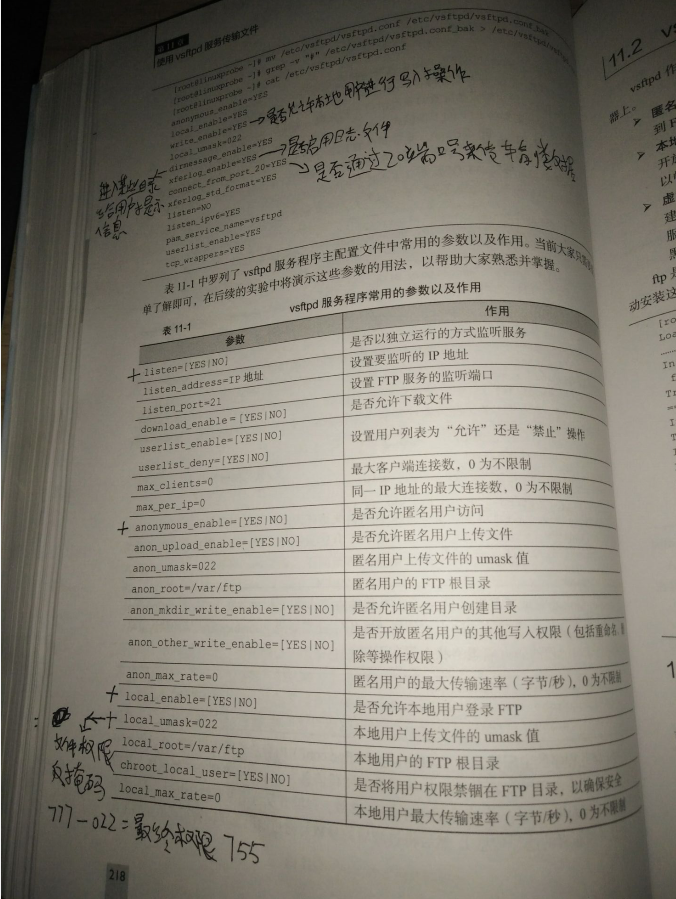 第11章
使用 vsftpd 服务传输文件
[root@linuxprobe ~]# mv /etc/vsftpd/vsftpd.conf /etc/vsftpd/vsftpd.conf_bak
[root@linuxprobe ~]# grep -v "#" /etc/vsftpd/vsftpd.conf_bak > /etc/vsftpd/
[root@linuxprobe ~]# cat /etc/vsftpd/vsftpd.conf
anonymous_enable=YES
local_enable=YES
write_enable=YES →是否允许本地用户进行写入操作
local_umask=022
dirmessage_enable=YES
xferlog_enable=YES →是否启用日志文件
connect_from_port_20=YES →是否通过20端口号来传输数据
xferlog_std_format=YES
进入某些目录
会给用户提示
信息
listen=NO
listen_ipv6=YES
pam_service_name=vsftpd
userlist_enable=YES
tcp_wrappers=YES
表 11-1 中罗列了 vsftpd 服务程序主配置文件中常用的参数以及作用。当前大家只需
单了解即可，在后续的实验中将演示这些参数的用法，以帮助大家熟悉并掌握。
表 11-1 vsftpd 服务程序常用的参数以及作用
参数 作用
+ listen=[YES|NO] 是否以独立运行的方式监听服务
listen_address=IP 地址 设置要监听的 IP 地址
listen_port=21 设置 FTP 服务的监听端口
download_enable＝[YES|NO] 是否允许下载文件
userlist_enable=[YES|NO]
userlist_deny=[YES|NO] 设置用户列表为“允许”还是“禁止”操作
max_clients=0 最大客户端连接数，0 为不限制
max_per_ip=0 同一 IP 地址的最大连接数，0 为不限制
+ anonymous_enable=[YES|NO] 是否允许匿名用户访问
anon_upload_enable=[YES|NO] 是否允许匿名用户上传文件
anon_umask=022 匿名用户上传文件的 umask 值
anon_root=/var/ftp 匿名用户的 FTP 根目录
anon_mkdir_write_enable=[YES|NO] 是否允许匿名用户创建目录
anon_other_write_enable=[YES|NO] 是否开放匿名用户的其他写入权限（包括重命名、删
除等操作权限）
anon_max_rate=0 匿名用户的最大传输速率（字节/秒），0 为不限制
+ local_enable=[YES|NO] 是否允许本地用户登录 FTP
+ local_umask=022 本地用户上传文件的 umask 值
local_root=/var/ftp 本地用户的 FTP 根目录
chroot_local_user=[YES|NO] 是否将用户权限禁锢在 FTP 目录，以确保安全
local_max_rate=0 本地用户最大传输速率（字节/秒），0 为不限制
文件权限
反掩码
777－022＝最终权限 755
218
11.2
vsftpd 作
器上。
➢ 匿名
到 F
➢ 本地
开放
以
➢ 虚
建
服
ftp 是
动安装这
[ro
Loa
In
Tr